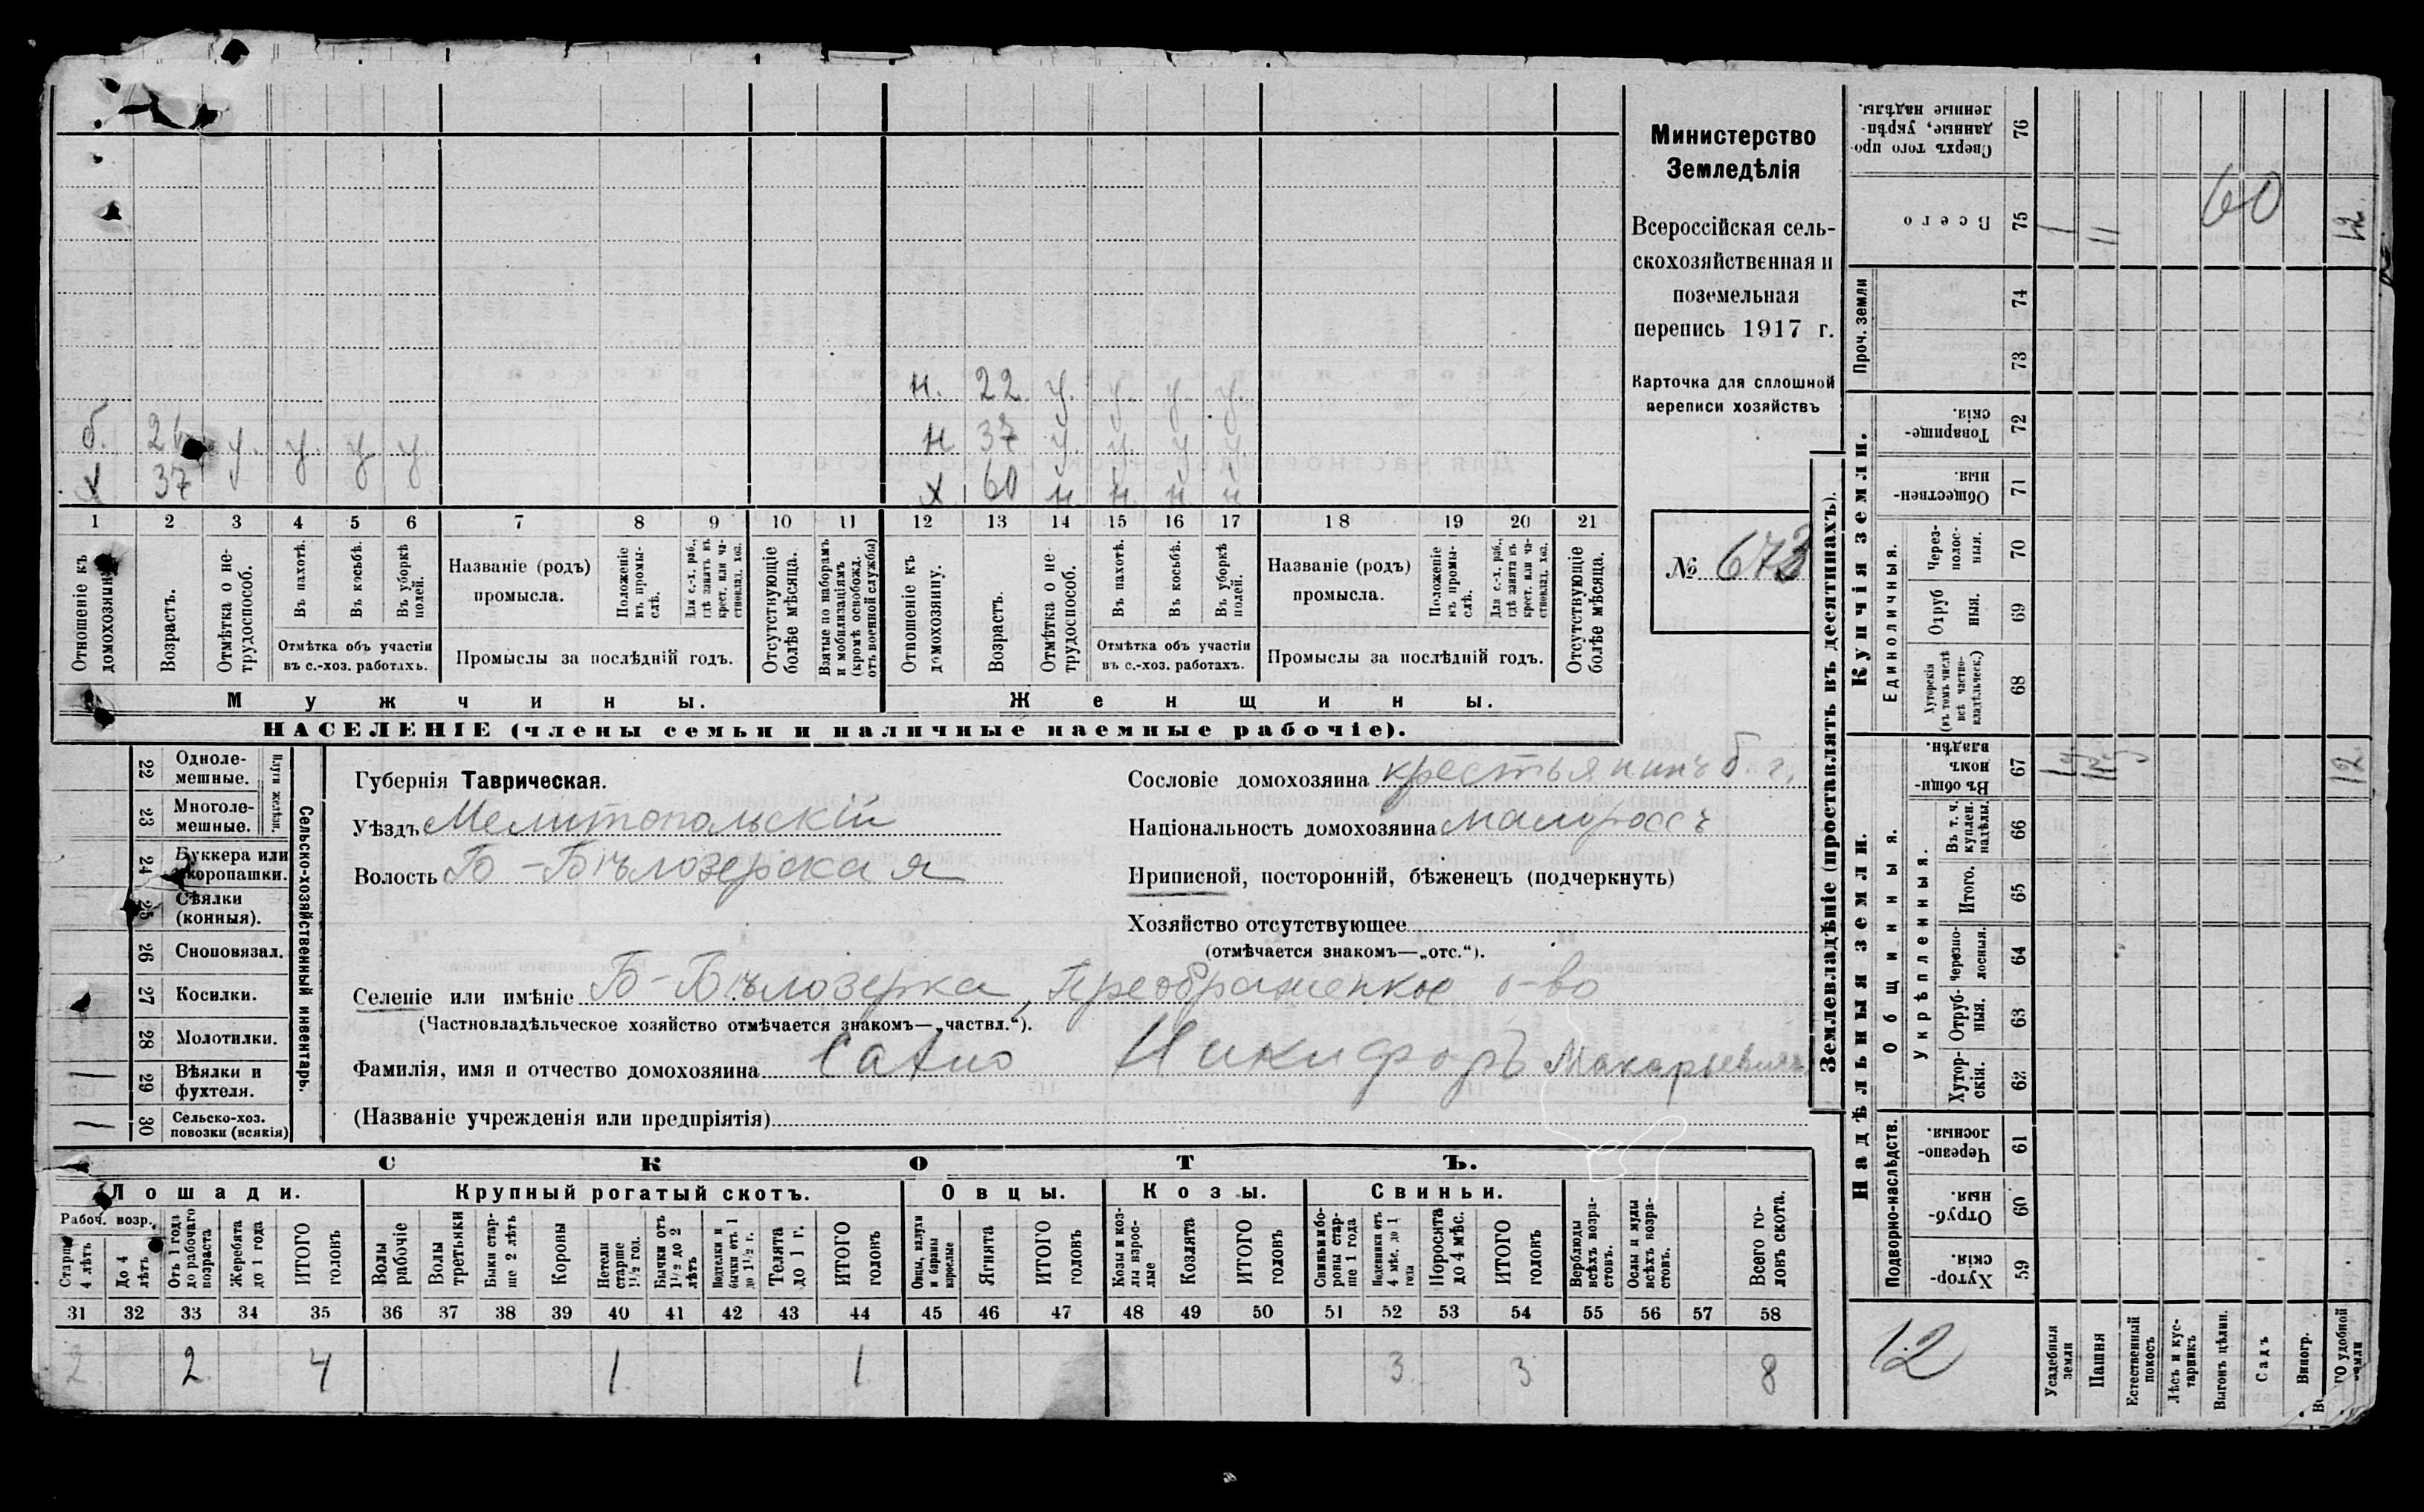 х 37
б. у. у. у у
н. 22. у. у. у. у.
н 37 у. у. у у.
х 60 н н. н н
1 2 3 4 5 6 7 8 9 10 11 12 13 14 15 16 17 18 19 20 21
Отношеніе къ домохозяину.
Возрастъ.
Отмѣтка о не-
трудоспособ.
Въ пахотѣ.
Въ косьбѣ.
Въ уборкѣ
полей.
Отмѣтка объ участіи
въ с.-хоз. работахъ.
Названіе (родъ)
промысла.
Положеніе
въ промы-
слѣ.
Для с.-х. раб.,
гдѣ занятъ въ
крест. или ча-
стновлад. хоз.
Промыслы за послѣдній годъ.
Отсутствующіе
болѣе мѣсяца.
Взятые по наборамъ
и мобилизаціямъ
(кромѣ освобожд.
отъ военной службы)
Отношеніе къ
домохозяину.
Возрастъ.
Отмѣтка о не-
трудоспособ.
Въ пахотѣ.
Въ косьбѣ.
Въ уборкѣ
полей.
Отмѣтка объ участіи
въ с.-хоз. работахъ.
Названіе (родъ)
промысла.
Положеніе
въ промы-
слѣ.
Для с.-х. раб.,
гдѣ занята въ
крест. или ча-
стновлад. хоз.
Промыслы за послѣдній годъ.
Отсутствующіе
болѣе мѣсяца.
Мужчины.
Женщины.
НАСЕЛЕНІЕ (члены семьи и наличные наемные рабочіе).
Министерство
Земледѣлія
Всероссійская сель-
скохозяйственная и
поземельная
перепись 1917 г.
Карточка для сплошной
переписи хозяйствъ
№ 673
22 Одноле-
мешные.
23 Многоле-
мешные.
Плуги желѣзн.
24 Буккера или
скоропашки.
25 Сѣялки
(конныя).
26 Сноповязал.
27 Косилки.
28 Молотилки.
29 Вѣялки и
фухтеля.
30 Сельско-хоз.
повозки (всякія)
Сельско-хозяйственный инвентарь.
Губернія Таврическая.
Уѣздъ Мелитопольскій
Волость Б-Бѣлозерская
Сословіе домохозяина крестьянинъ б. г.
Національность домохозяина малороссъ
Приписной, посторонній, бѣженецъ (подчеркнуть)
Хозяйство отсутствующее
(отмѣчается знакомъ—„отс.“).
Селеніе или имѣніе Б-Бѣлозерка, Преображенкое о-во
(Частновладѣльческое хозяйство отмѣчается знакомъ—„частвл.“).
Фамилія, имя и отчество домохозяина Никифоръ Макарьевичъ
(Названіе учрежденія или предпріятія)
СКОТЪ.
Лошади. Крупный рогатый скотъ. Овцы. Козы. Свиньи.
Рабоч. возр.
Старше
4 лѣтъ
До 4
лѣтъ
Отъ 1 года
до рабочаго
возраста
Жеребята
до 1 года
ИТОГО
головъ
Волы
рабочіе
Волы
третьяки
Быки стар-
ше 2 лѣтъ
Коровы
Нетели
старше
1½ год.
Бычки отъ
1½ до 2
лѣтъ
Подтелки и
бычки отъ 1
до 1½ г.
Телята
до 1 г.
ИТОГО
головъ
Овцы, валухи
и бараны
взрослые
Ягнята
ИТОГО
головъ
Козы и коз-
лы взрос-
лые
Козлята
ИТОГО
головъ
Свиньи и бо-
ровы стар-
ше 1 года
Подсвинки отъ
4 мѣс. до 1
года
Поросята
до 4 мѣс.
ИТОГО
головъ
Верблюды
всѣхъ возра-
стовъ.
Ослы и мулы
всѣхъ возра-
стовъ.
Всего го-
ловъ скота.
31 32 33 34 35 36 37 38 39 40 41 42 43 44 45 46 47 48 49 50 51 52 53 54 55 56 57 58
2 2 4 1 1 3 3 8
Землевладѣніе (проставлять въ десятинахъ).
Сверхъ того про-
данные, укрѣп-
ленные надѣлы.
76
Всего
75
1
11
60
12.
Проч. земли
74
73
Купчія земли.
Товарище-
скія.
72
Обществен-
ныя.
71
Единоличныя.
Через-
полос-
ныя.
70
Отруб
ныя.
69
Хуторскія
(въ томъ числѣ
всѣ частно-
владѣльческ.)
68
Надѣльныя земли.
Общинныя.
Въ общин-
номъ
владѣн.
67
12.
Укрѣпленныя.
Въ т. ч.
куплен.
надѣлы.
66
Итого.
65
Черезпо-
лосныя.
64
Отруб-
ныя.
63
Хутор-
скія.
62
Подворно-наслѣдств.
Черезпо-
лосныя.
61
Отруб-
ныя.
60
Хутор-
скія.
59
12
Усадебныя
земли
Пашня
Естественный
покосъ
Лѣсъ и кус-
тарникъ
Выгонъ цѣлин.
Садъ
Виногр.
удобной
земли